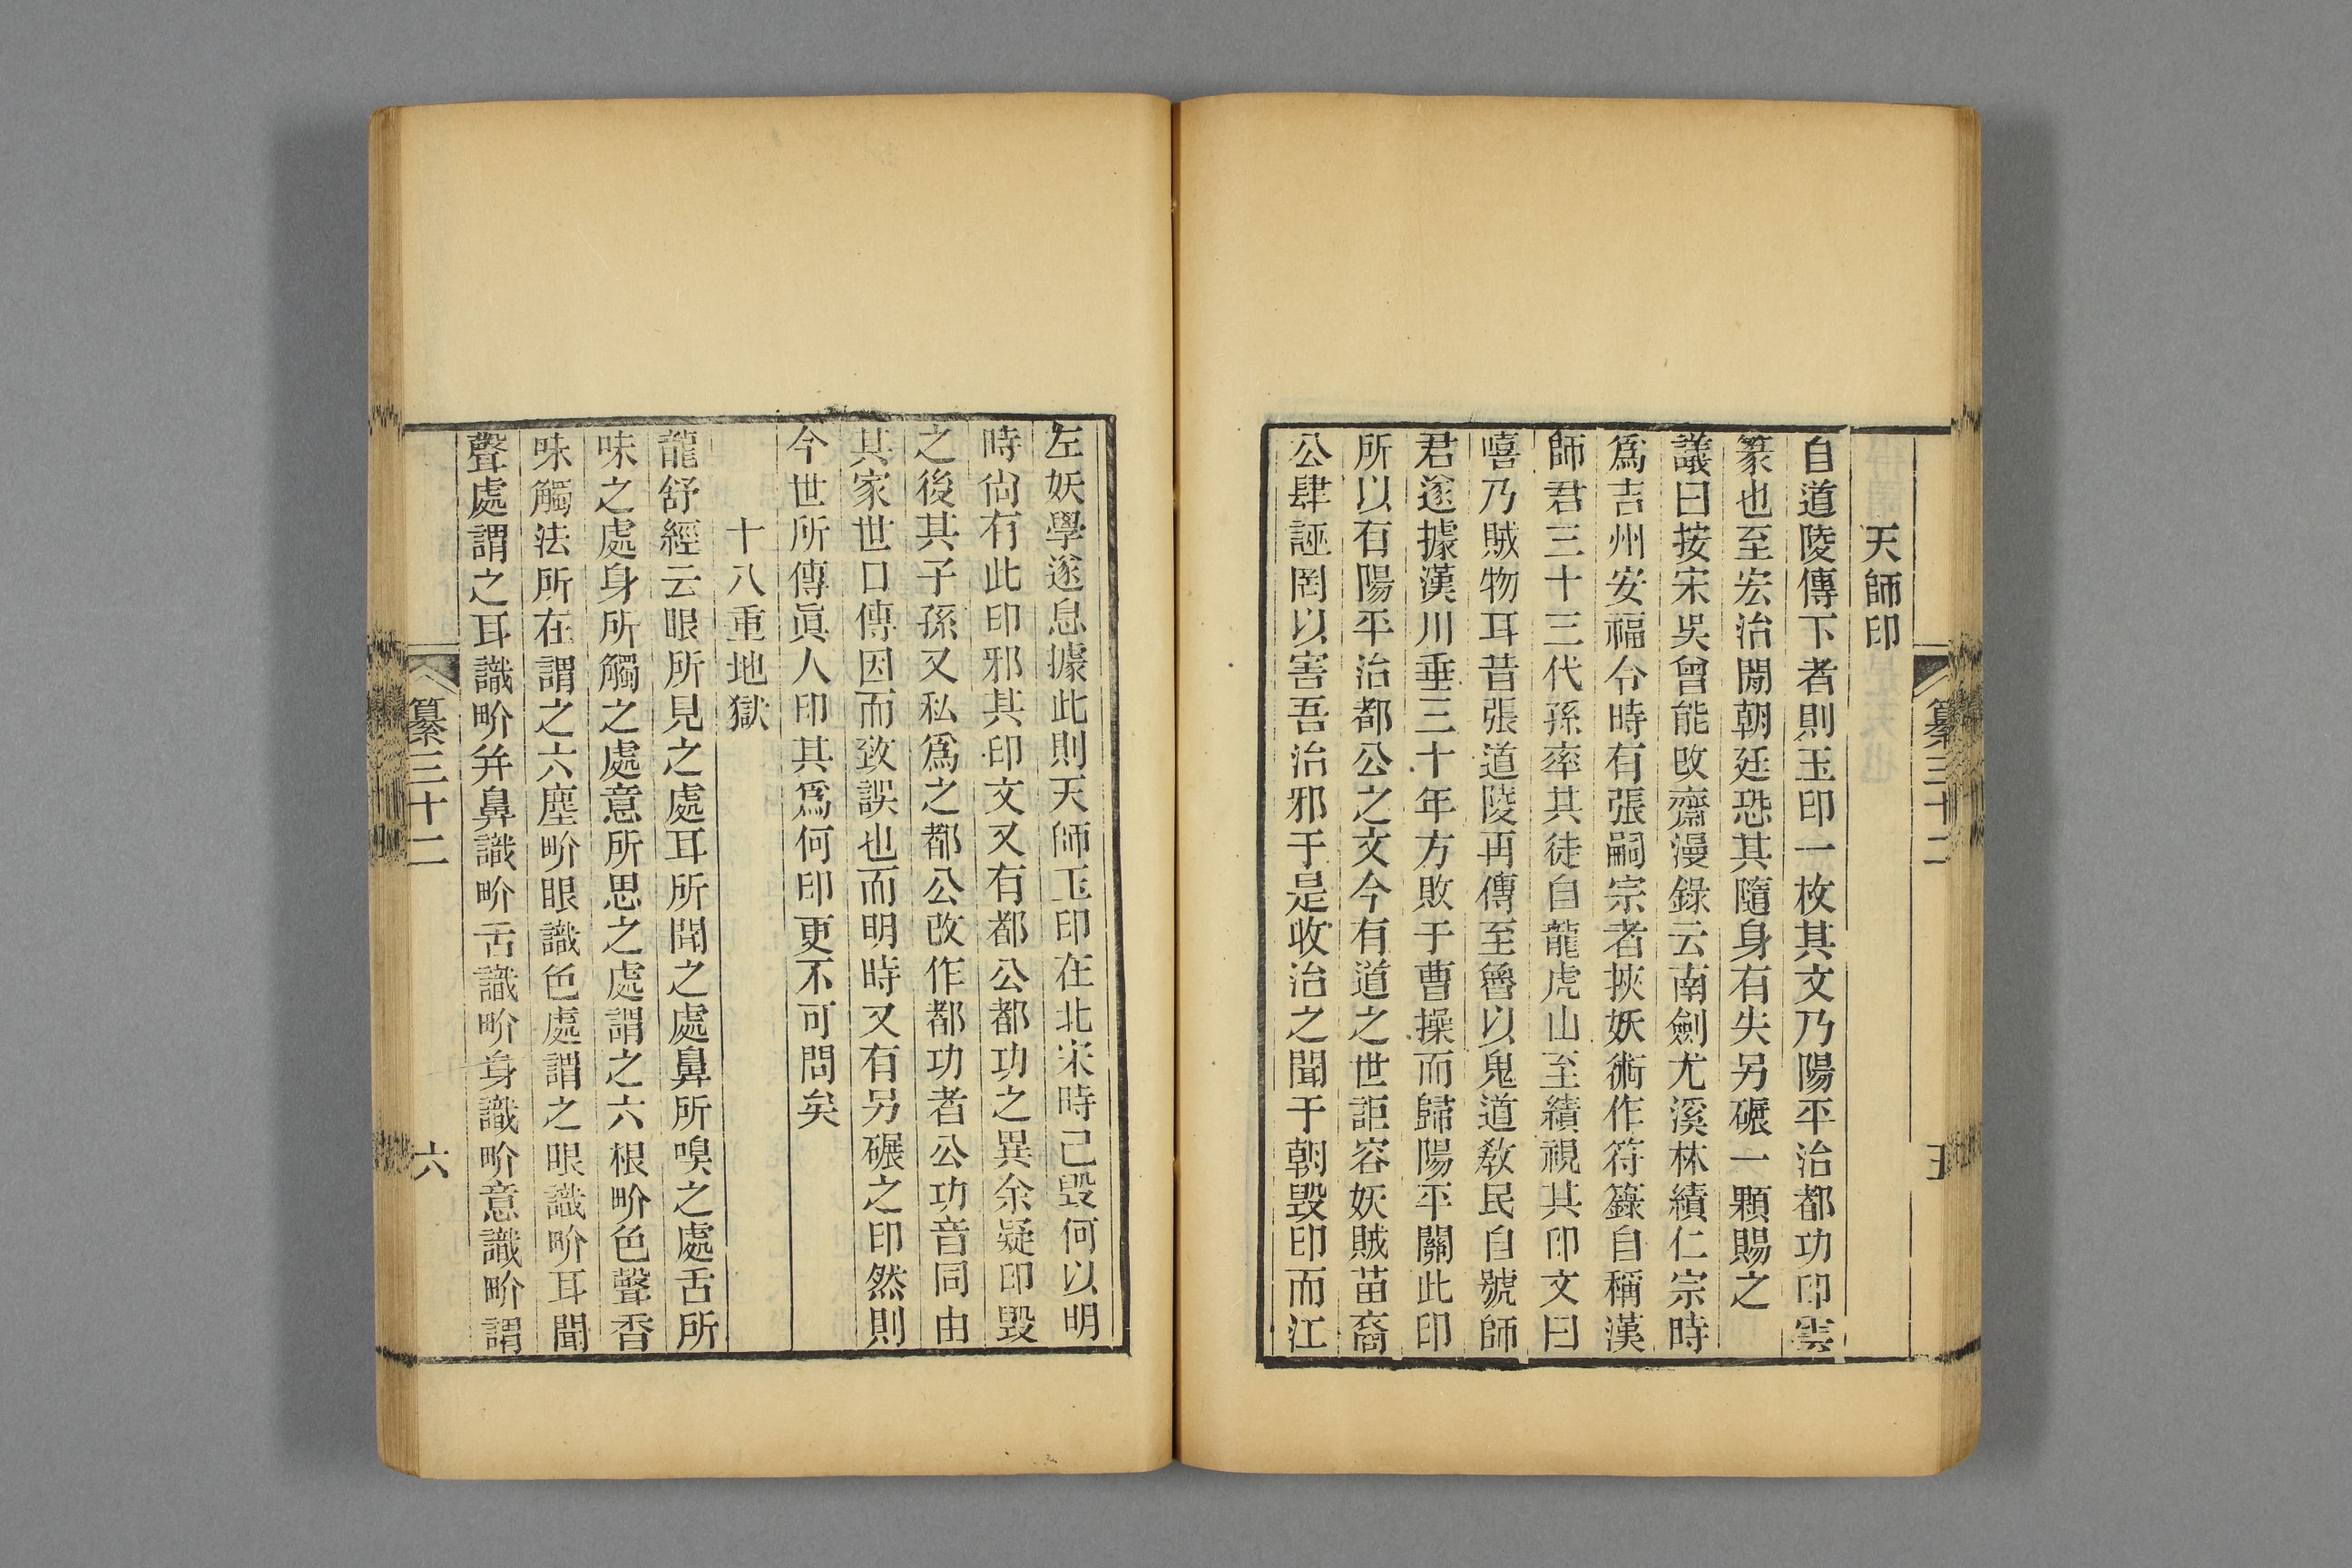 纂三十二
五
天師印
自道陵傳下者則玉印一枚其文乃陽平治都功印雲
篆也至宏治閒朝廷恐其隨身有失另碾一顆賜之
議曰按宋吳曾能改齋漫錄云南劍尤溪林績仁宗時
爲吉州安福令時有張嗣宗者挾妖術作符籙自稱漢
師君三十三代孫率其徒自龍虎山至績視其印文曰
嘻乃賊物耳昔張道陵再傳至魯以鬼道敎民自號師
君遂據漢川垂三十年方敗于曹操而歸陽平關此印
所以有陽平治都公之文今有道之世詎容妖賊苗裔
公肆誣罔以害吾治邪于是收治之聞于朝毀印而江
左妖學遂息據此則天師玉印在北宋時已毀何以明
時尙有此印邪其印文又有都公都功之異余疑印毀
之後其子孫又私爲之都公改作都功者公功音同由
其家世口傳因而致誤也而明時又有另碾之印然則
今世所傳眞人印其爲何印更不可問矣
十八重地獄
龍舒經云眼所見之處耳所聞之處鼻所嗅之處舌所
味之處身所觸之處意所思之處謂之六根畍色聲香
味觸法所在謂之六塵畍眼識色處謂之眼識畍耳聞
聲處謂之耳識畍并鼻識畍舌識畍身識畍意識畍謂
纂三十二
六